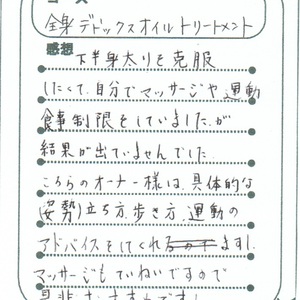 コース
全身デトックスオイルトリートメント
感想 下半身太りを克服
したくて、自分でマッサージや、運動
食事制限をしていましたが
結果が出ていませんでした。
こちらのオーナー様は、具体的な
(姿勢)立ち方、歩き方、運動の
アドバイスをしてくれますし
マッサージもていねいですので
是非おすすめです!